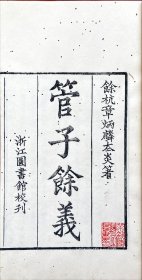 餘杭章炳麟太炎著
管子餘義
浙江圖書館校刊